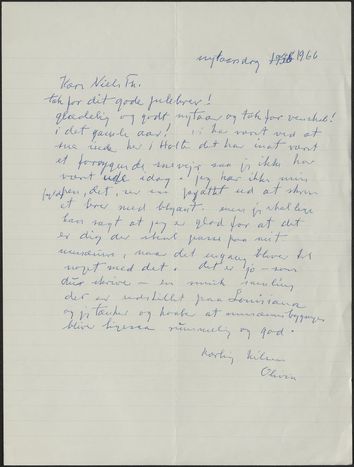 nytaarsdag 1966
Kære Niels Th.
tak for dit gode julebrev!
glædelig og godt nytaar og tak for venskab!
i det gamle aar! vi har været ved at
sne inde her i Holte det har malt været
et forrygende snevejr saa jeg ikke har
været ude idag. jeg har ikke min
det, er en ud at skrive
et brev med blyant. men jeg skal lige
sagt at jeg er glad for at det
er dig der skal passe paa mit
museum, naar det engang bliver til
noget med det. det er jo – som
du skrive – en smuk samling
der er udstillet paa Louisiana
og jeg tænker og haabe at museumsbygningen
blive ligesaa rummelig og god.
Kærlig hilsen